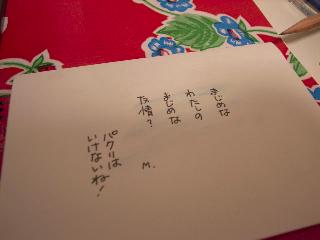 まじめな
わたしの
まじめな
友情?
M.
パクリは
いけないね!